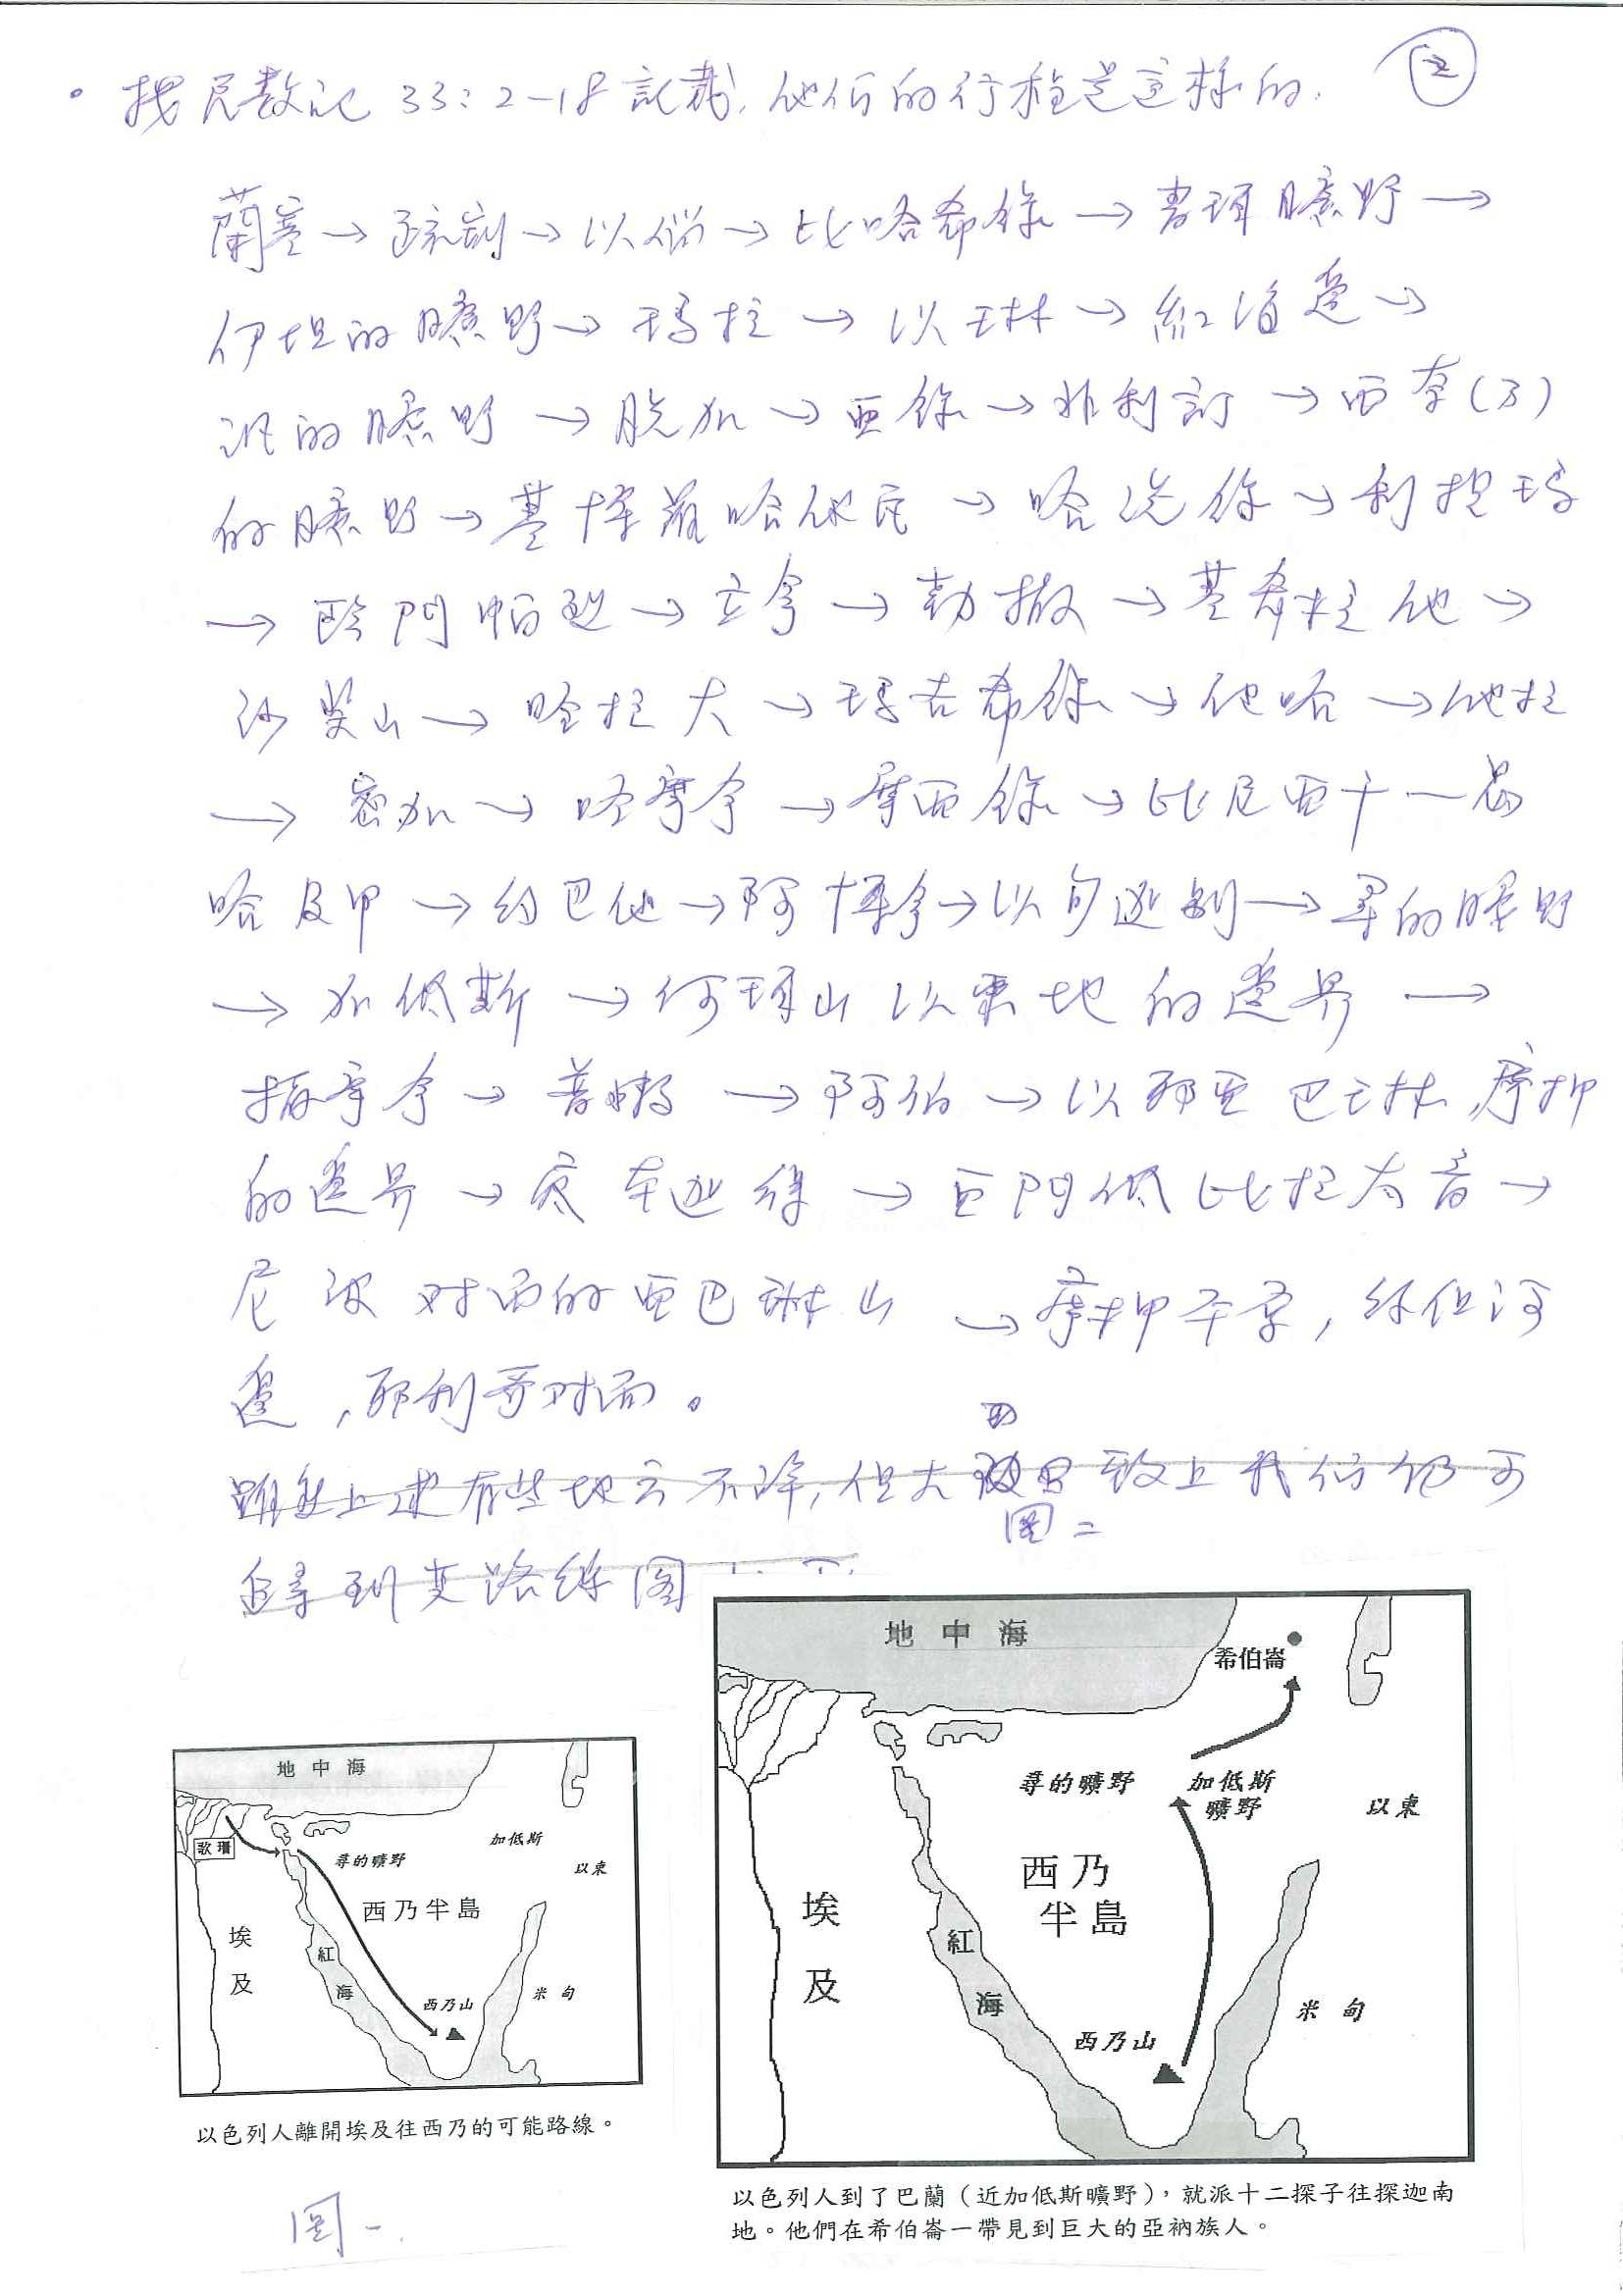 ②
• 按民數記 33:2-18 記載, 他们的行程是这样的.
蘭塞 → 疏割 → 以倘 → 比哈希錄 → 書珥曠野 →
伊坦的曠野 → 瑪拉 → 以琳 → 紅海邊 →
汛的曠野 → 脫加 → 亞錄 → 非利訂 → 西奈(乃)
的曠野 → 基博羅哈他瓦 → 哈洗錄 → 利提瑪
→ 臨門帕烈 → 立拿 → 勒撒 → 基希拉他 →
沙斐山 → 哈拉大 → 瑪吉希錄 → 他哈 → 他拉
→ 密加 → 哈摩拿 → 摩西錄 → 比尼亞干 → 曷
哈及甲 → 約巴他 → 阿博拿 → 以旬迦別 → 尋的曠野
→ 加低斯 → 何珥山 以東地的邊界 →
撒摩拿 → 普嫩 → 阿伯 → 以耶亞巴琳, 摩押
的邊界 → 底本迦得 → 亞門低比拉太音 →
尼波对面的亞巴琳山 → 摩押平原, 約但河
邊, 耶利哥对面。
雖然上述有些地方不詳, 但大致上我们仍可
追尋到其路線图
图二
地中海
希伯崙
尋的曠野
加低斯曠野
以東
西乃半島
埃及
紅海
西乃山
米甸
以色列人到了巴蘭（近加低斯曠野），就派十二探子往探迦南
地。他們在希伯崙一帶見到巨大的亞衲族人。
地中海
歌珊
尋的曠野
加低斯
以東
西乃半島
埃及
紅海
西乃山
米甸
以色列人離開埃及往西乃的可能路線。
图一.